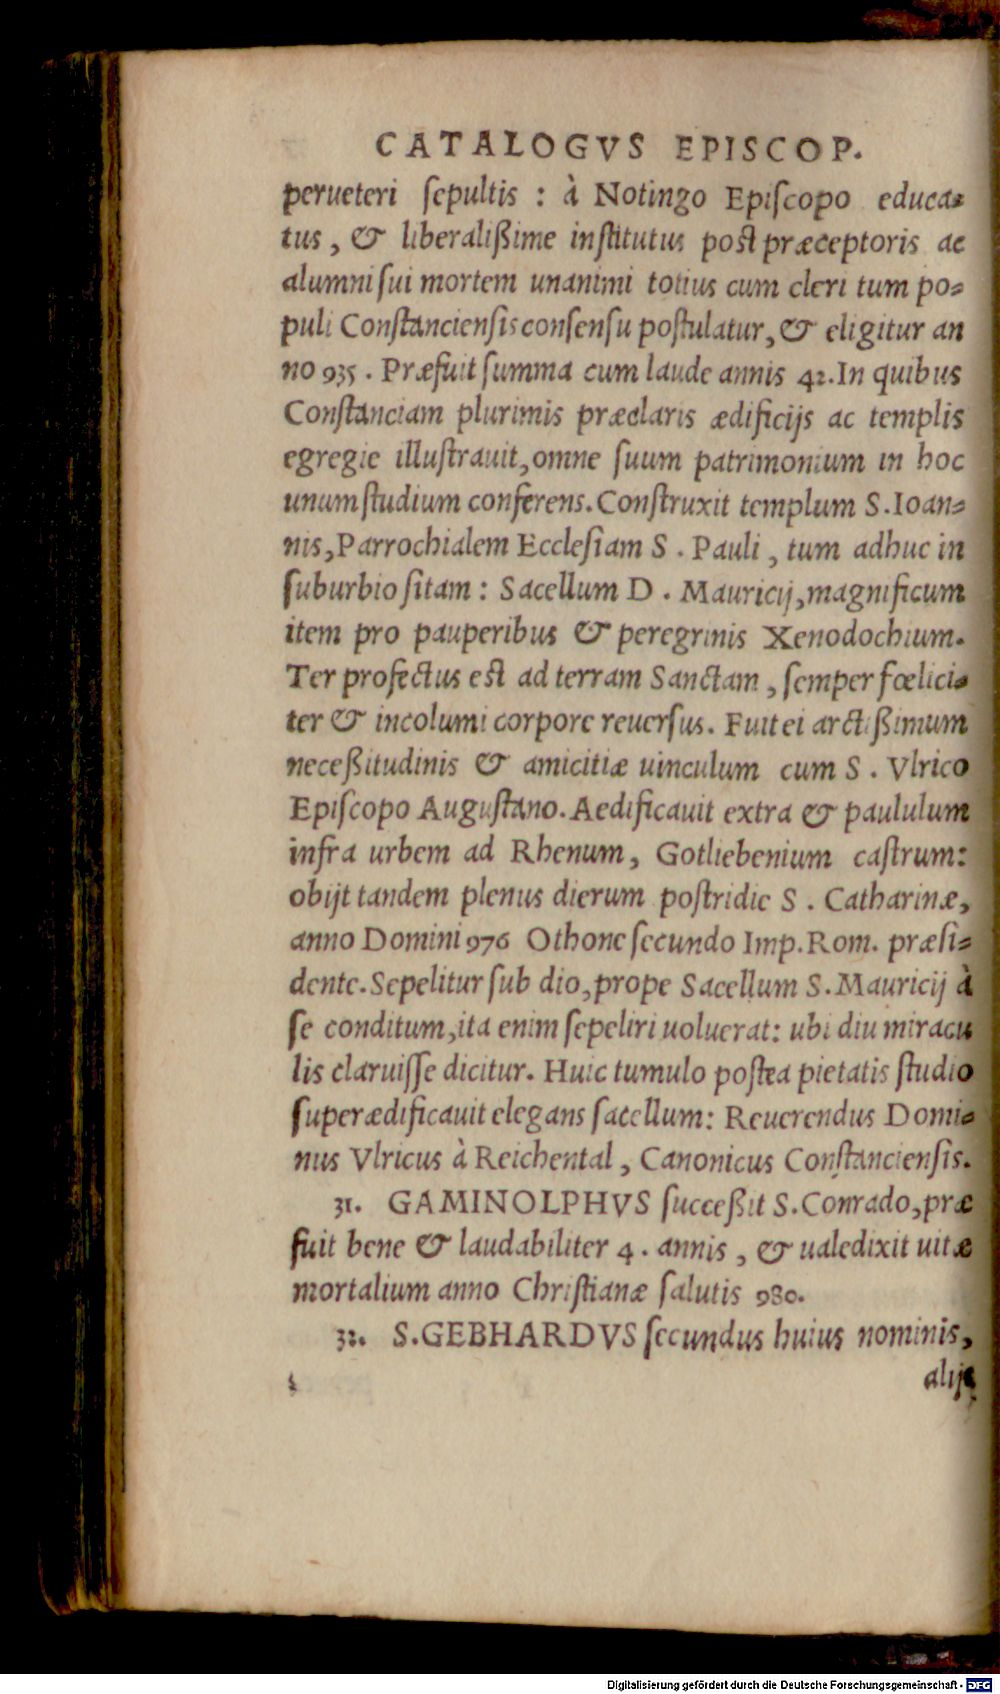 CATALOGVS EPISCOP.
perueteri ſepultis : à Notingo Epiſcopo educa-
tus, & liberalißime inſtitutus poſt præceptoris ac
alumni ſui mortem unanimi totius cum cleri tum po-
puli Conſtanciensis conſenſu poſtulatur, & eligitur an
no 935. Præfuit ſumma cum laude annis 42. In quibus
Conſtanciam plurimis præclaris ædificijs ac templis
egregie illuſtrauit, omne ſuum patrimonium in hoc
unum ſtudium conferens. Conſtruxit templum S. Ioan-
nis, Parrochialem Eccleſiam S. Pauli, tum adhuc in
ſuburbio ſitam: Sacellum D. Mauricij, magnificum
item pro pauperibus & peregrinis Xenodochium.
Ter profectus eſt ad terram Sanctam, ſemper fœlici-
ter & incolumi corpore reuerſus. Fuit ei arctißimum
neceßitudinis & amicitiæ uinculum cum S. Vlrico
Epiſcopo Auguſtano. Aedificauit extra & paululum
infra urbem ad Rhenum, Gotliebenium caſtrum:
obijt tandem plenus dierum poſtridie S. Catharinæ,
anno Domini 976 Othone ſecundo Imp. Rom. præſi-
dente. Sepelitur ſub dio, prope Sacellum S. Mauricij à
ſe conditum, ita enim ſepeliri uoluerat: ubi diu miracu
lis claruiſſe dicitur. Huic tumulo poſtea pietatis ſtudio
ſuperædificauit elegans ſacellum: Reuerendus Domi-
nus Vlricus à Reichental, Canonicus Conſtanciensis.
31. GAMINOLPHVS ſucceßit S. Conrado, præ
fuit bene & laudabiliter 4. annis, & ualedixit uitæ
mortalium anno Chriſtianæ ſalutis 980.
32. S. GEBHARDVS ſecundus huius nominis,
alijs
Digitalisierung gefördert durch die Deutsche Forschungsgemeinschaft - DFG